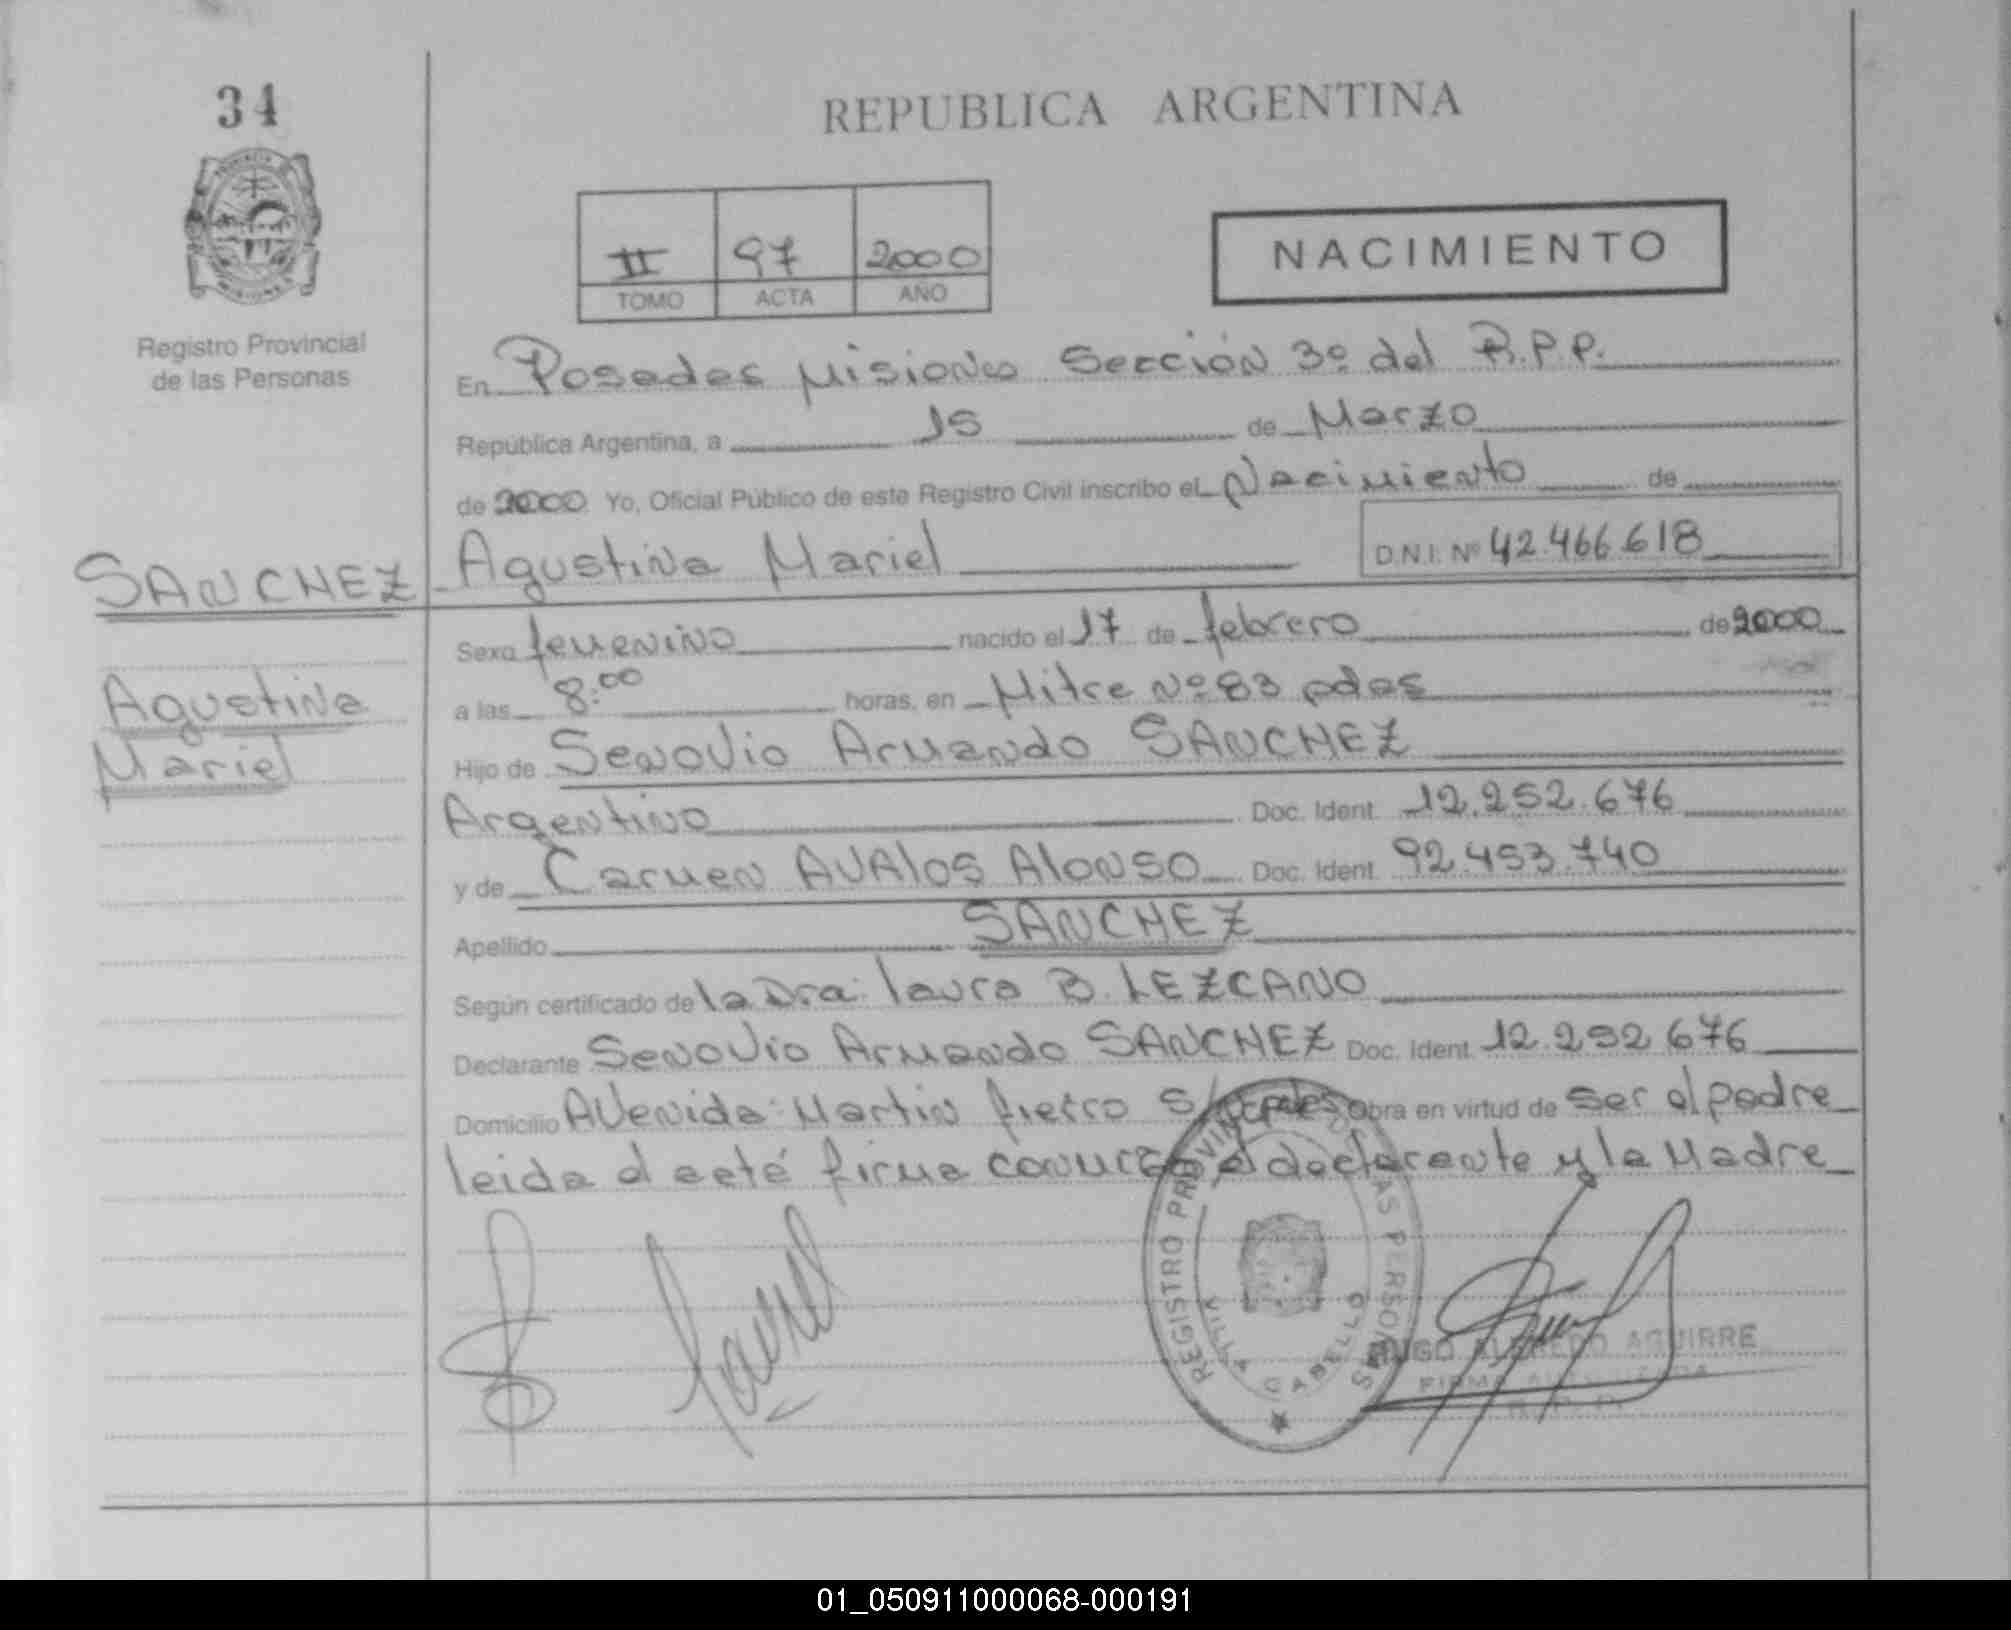 34
REPUBLICA ARGENTINA
II 97 2000
TOMO ACTA AÑO
NACIMIENTO
Registro Provincial
de las Personas
En Posadas Misiones Sección 3º del R.P.P.
República Argentina, a 15 de Marzo
de 2000 Yo, Oficial Público de este Registro Civil inscribo el Nacimiento de
SANCHEZ Agustina Mariel D.N.I. Nº 42.466.618
Sexo femenino nacido el 17 de febrero de 2000
Agustina
Mariel
a las 8:00 horas, en Mitre Nº 83 pdas
Hijo de Senovio Armando SANCHEZ
Argentino Doc. Ident. 12.252.676
y de Carmen AVALOS ALONSO Doc. Ident. 92.453.740
Apellido SANCHEZ
Según certificado de la Dra: Laura B. LEZCANO
Declarante Senovio Armando SANCHEZ Doc. Ident. 12.252.676
Domicilio Avenida: Martin fierro S/ Obra en virtud de ser el padre
leida el acta firma el declarante y la Madre
REGISTRO PROVINCIAL DE LAS PERSONAS
VILLA CABELLO
HUGO ALFREDO AGUIRRE
FIRMA AUTORIZADA
01_050911000068-000191